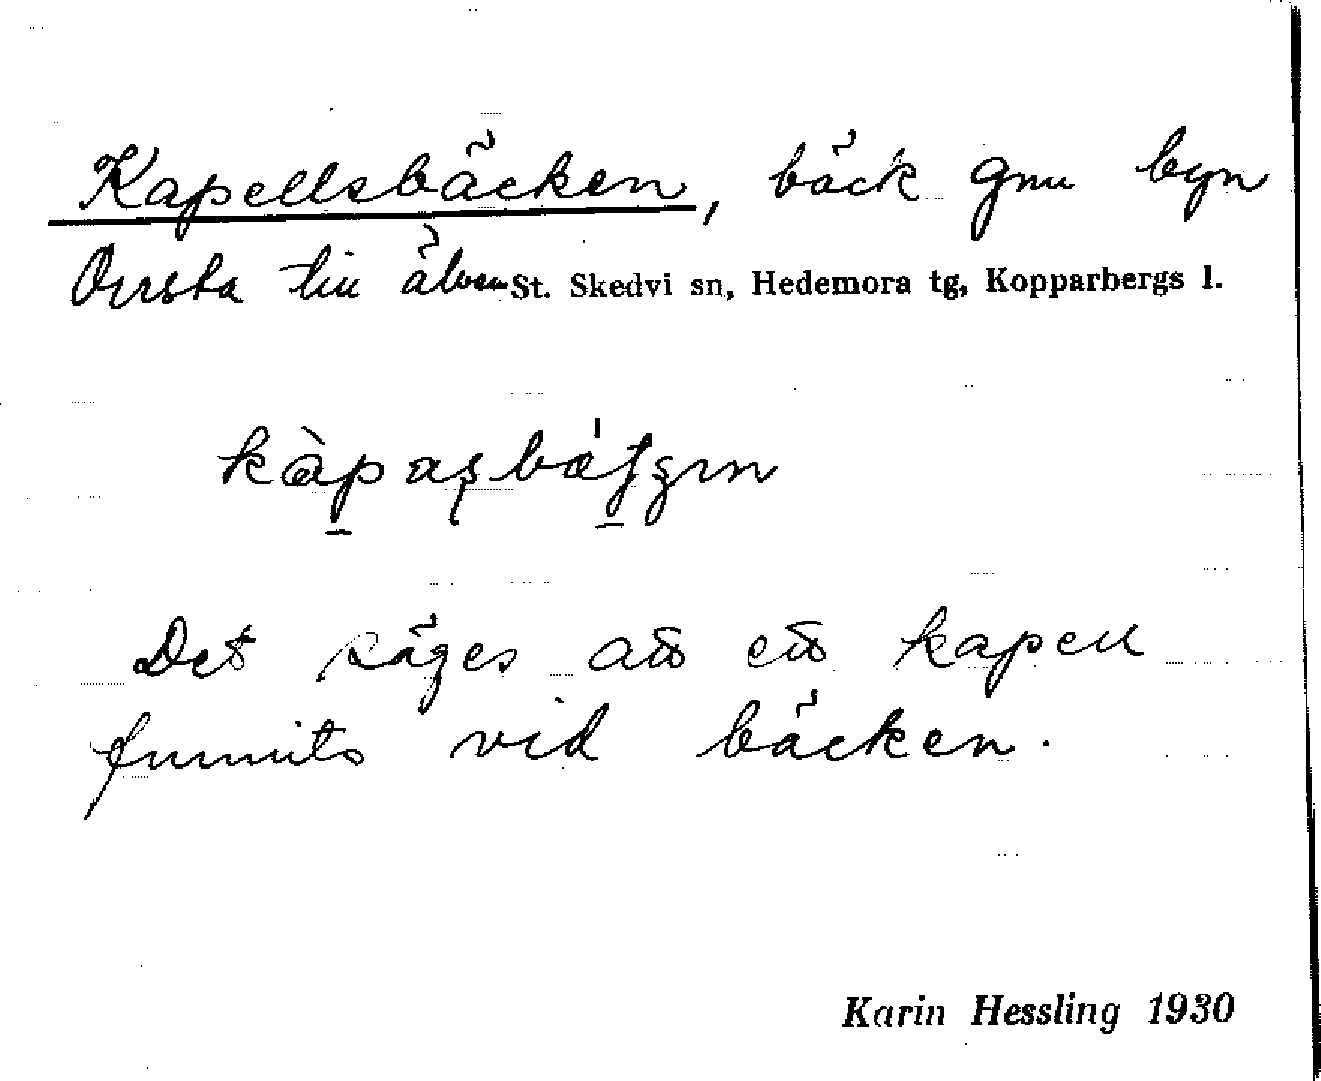 Kapellsbäcken, bäck gnm byn
till älven St. Skedvi sn, Hedemora tg, Kopparbergs l.
Det säges att ett kapell
funnits vid bäcken.
Karin Hessling 1930